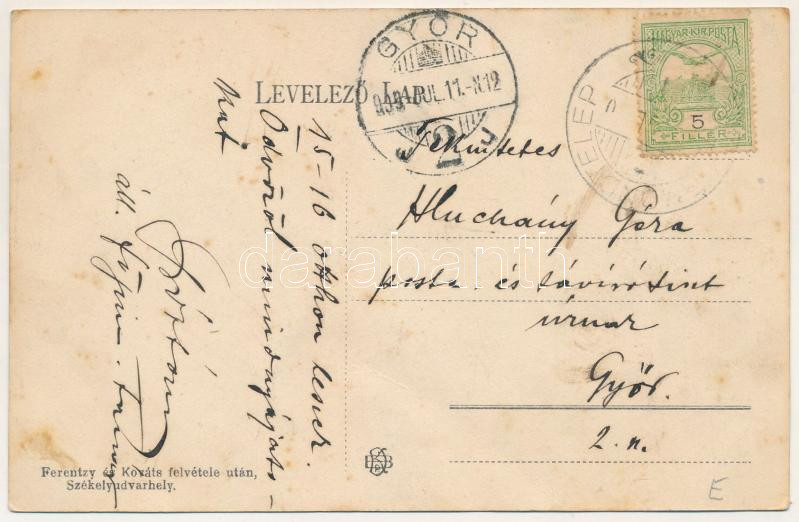 LEVELEZŐ LAP
GYŐR
JUL. 11.-N12
2
ELEP
MAGYAR KIR. POSTA
5
FILLÉR
Tekintetes
Hluchány Géza
posta és távirótiszt
úrnak
Győr.
2. n.
15-16 otthon leszek.
Üdvözöl mindnyájato-
kat
áll.
Ferentzy és Kováts felvétele után,
Székelyudvarhely.
E
darabanth